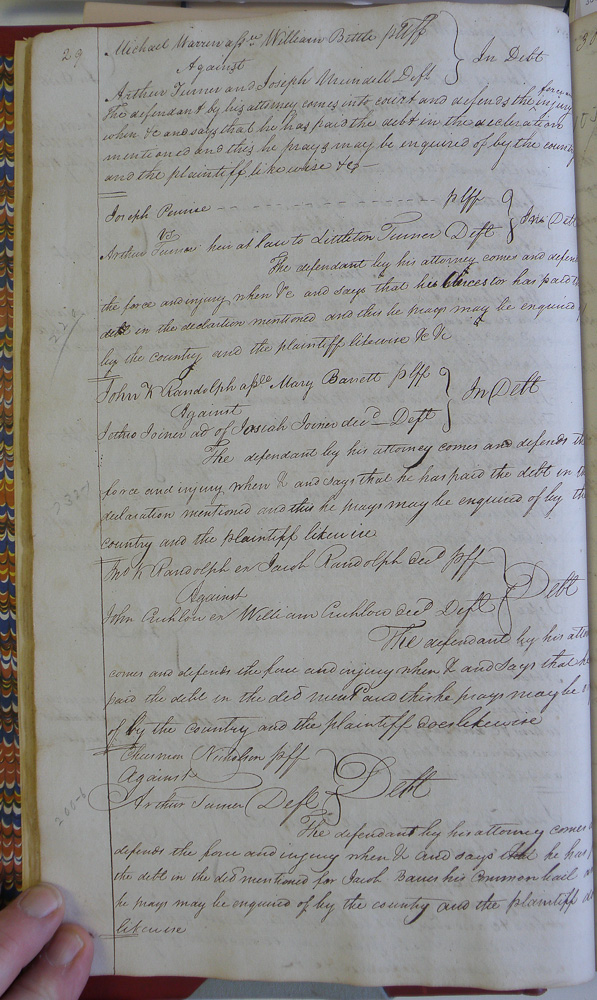 29
Michael Warren assee William Bettle plff
Against
In Debt
Arthur Turner and Joseph Deft
The defendant by his attorney comes into court and defends the force and injury
when &c and says that he has paid the debt in the declaration
mentioned and this he prays may be enquired of by the country
and the plaintiff likewise &c
Joseph plff
vs
In Debt
Arthur Turner heir at law to Littleton Turner Deft
The defendant by his attorney comes and defends
the force and injury when &c and says that his Ancestor has paid the
debt in the declaration mentioned and this he prays may be enquired
by the country and the plaintiff likewise &c &c
John K Randolph assee Mary Barrett plff
Against
In Debt
Jethro Joiner ad of Josiah Joiner decd Deft
The defendant by his attorney comes and defends the
force and injury when & and says that he has paid the debt in the
declaration mentioned and this he prays may be enquired of by the
country and the plaintiff likewise
Jno K Randolph ex Jacob Randolph decd plff
Against
Debt
John Crichlow ex William Crichlow decd Deft
The defendant by his attor
comes and defends the force and injury when & and says that he
paid the debt in the decl ment and this he prays may be
of by the country and the plaintiff does likewise
Nicholson plff
Against
Debt
Arthur Turner Deft
The defendant by his attorney comes
defends the force and injury when & and says that he has
the debt in the decl mentioned for Jacob his Common bail
he prays may be enquired of by the country and the plaintiff
likewise